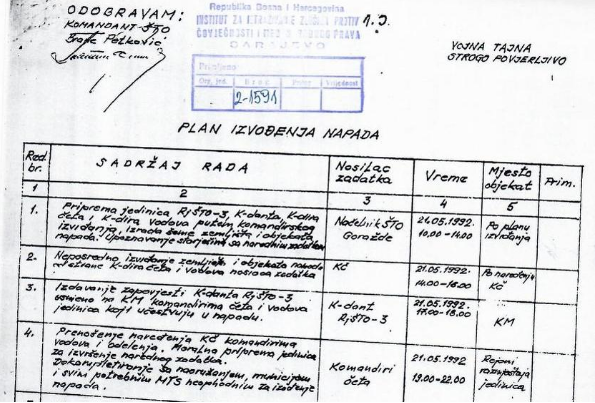 ODOBRAVAM:
KOMANDANT ŠTO
Republika Bosna i Hercegovina
INSTITUT ZA ISTRAŽIVANJE ZLOČINA PROTIV
ČOVJEČNOSTI I MEĐ. PRAVA
SARAJEVO
Primljeno
Org. jed.
Broj
Prilog
Vrijednost
2-1591
VOJNA TAJNA
STROGO POVJERLJIVO
PLAN IZVOĐENJA NAPADA
Red. br.
SADRŽAJ RADA
Nosilac zadatka
Vreme
Mjesto objekat
Prim.
1
2
3
4
5
1.
Priprema jedinica RjŠTO-3, K-danta, K-dira
četa i K-dira vodova putem komandirskog
izviđanja, izrada šeme zemljišta i objekata
napada. Upoznavanje starješina sa narednim zadatkom
Načelnik ŠTO
Goražde
21.05.1992.
10,00-14.00
Po planu
izviđanja
2.
Neposredno izviđanje zemljišta i objekata napada
od strane K-dira četa i vodova nosioca zadatka
KČ
21.05.1992.
14.00-16.00
Po naređenju
KČ
3.
Izdavanje zapovjesti K-danta RjŠTO-3
usmeno na KM komandirima četa i vodova
jedinica koji učestvuju u napadu.
K-dant
RjŠTO-3
21.05.1992.
17.00-18.00
KM
4.
Prenošenje naređenja KČ komandirima
vodova i odelenja. Moralna priprema jedinica
za izvršenje narednog zadatka.
sa naoružanjem, municijom
i svim potrebnim MTS neophodnim za izvođenje
napada.
Komandiri
četa
21.05.1992
19.00-22.00
Rejoni
razmještaja
jedinica